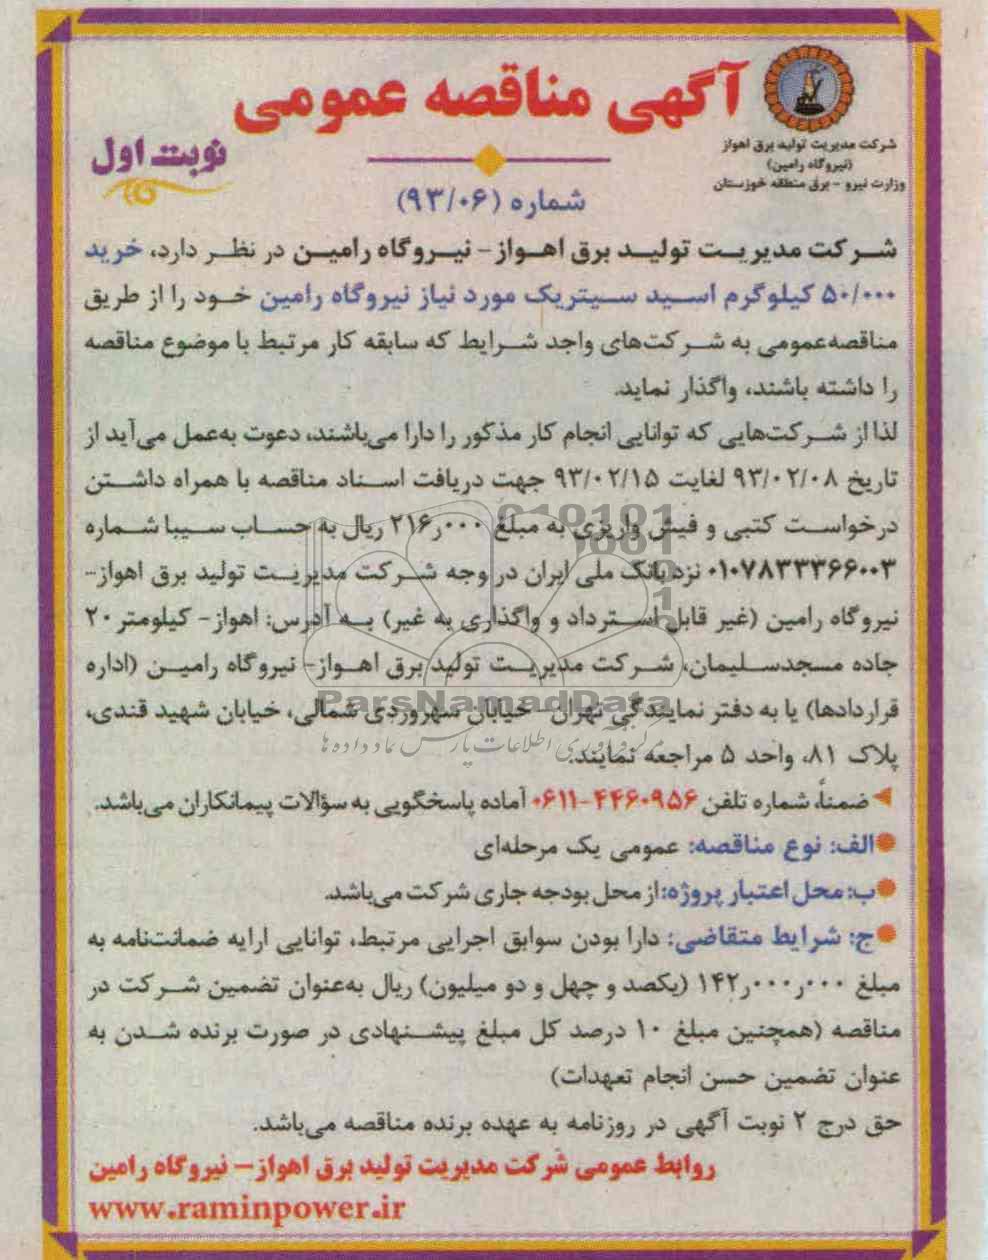 آگهی مناقصه عمومی
شرکت مدیریت تولید برق اهواز
(نیروگاه رامین)
وزارت نیرو - برق منطقه خوزستان
نوبت اول
شماره (۹۳/۰۶)
شرکت مدیریت تولید برق اهواز- نیروگاه رامین در نظر دارد، خرید
۵۰/۰۰۰ کیلوگرم اسید سیتریک مورد نیاز نیروگاه رامین خود را از طریق
مناقصه‌عمومی به شرکت‌های واجد شرایط که سابقه کار مرتبط با موضوع مناقصه
را داشته باشند، واگذار نماید.
لذا از شرکت‌هایی که توانایی انجام کار مذکور را دارا می‌باشند، دعوت به‌عمل می‌آید از
تاریخ ۹۳/۰۲/۰۸ لغایت ۹۳/۰۲/۱۵ جهت دریافت اسناد مناقصه با همراه داشتن
درخواست کتبی و فیش واریزی به مبلغ ۲۱۶٫۰۰۰ ریال به حساب سیبا شماره
۰۱۰۷۸۳۳۳۶۶۰۰۳ نزد بانک ملی ایران در وجه شرکت مدیریت تولید برق اهواز-
نیروگاه رامین (غیر قابل استرداد و واگذاری به غیر) به آدرس: اهواز- کیلومتر ۲۰
جاده مسجدسلیمان، شرکت مدیریت تولید برق اهواز- نیروگاه رامین (اداره
قراردادها) یا به دفتر نمایندگی تهران- خیابان سهروردی شمالی، خیابان شهید قندی،
پلاک ۸۱، واحد ۵ مراجعه نمایند.
ضمناً، شماره تلفن ۴۴۶۰۹۵۶-۰۶۱۱ آماده پاسخگویی به سؤالات پیمانکاران می‌باشد.
الف: نوع مناقصه: عمومی یک مرحله‌ای
ب: محل اعتبار پروژه: از محل بودجه جاری شرکت می‌باشد.
ج: شرایط متقاضی: دارا بودن سوابق اجرایی مرتبط، توانایی ارایه ضمانت‌نامه به
مبلغ ۱۴۲٫۰۰۰٫۰۰۰ (یکصد و چهل و دو میلیون) ریال به‌عنوان تضمین شرکت در
مناقصه (همچنین مبلغ ۱۰ درصد کل مبلغ پیشنهادی در صورت برنده شدن به
عنوان تضمین حسن انجام تعهدات)
حق درج ۲ نوبت آگهی در روزنامه به عهده برنده مناقصه می‌باشد.
روابط عمومی شرکت مدیریت تولید برق اهواز- نیروگاه رامین
www.raminpower.ir
ParsNamadData
مرکز فرآوری اطلاعات پارس نماد داده ها